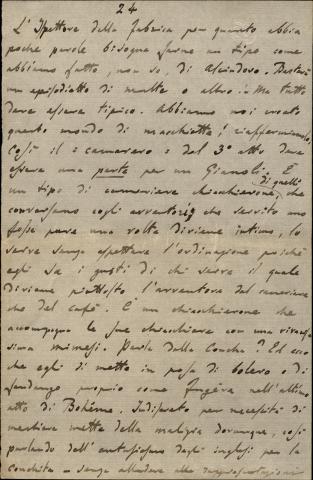 24
L'Ispettore della fabrica per quanto abbia
poche parole bisogna farne un tipo come
abbiamo fatto, non so, di Ascindoro. Basterà
un episodietto di multe o altro. Ma tutto
deve essere tipico. Abbiamo noi creato
questo mondo di macchiette! riaffermiamolo.
Così il "camarero" del 3° atto deve
essere una parte per un Gianoli. È
un tipo di cameriere chiacchierone, di quelli che
conversano cogli avventori, che servito uno
fosse pure una volta diviene intimo, lo
serve senza aspettare l'ordinazione poichè
egli sa i gusti di chi serve il quale
diviene piuttosto l'avventore del cameriere
che del caffè. È un chiacchierone che
accompagna le sue chiacchiere con una
mimesi. Parla della Concha? Ed ecco
che egli si mette in posa di bolero o di
fandango proprio come fugèva nell'ultimo
atto di Bohème. Indiscreto per necessità di
mestiere mette della malizia dovunque, così
parlando dell'entusiasmo degli inglesi per la
Conchita - senza alludere alle